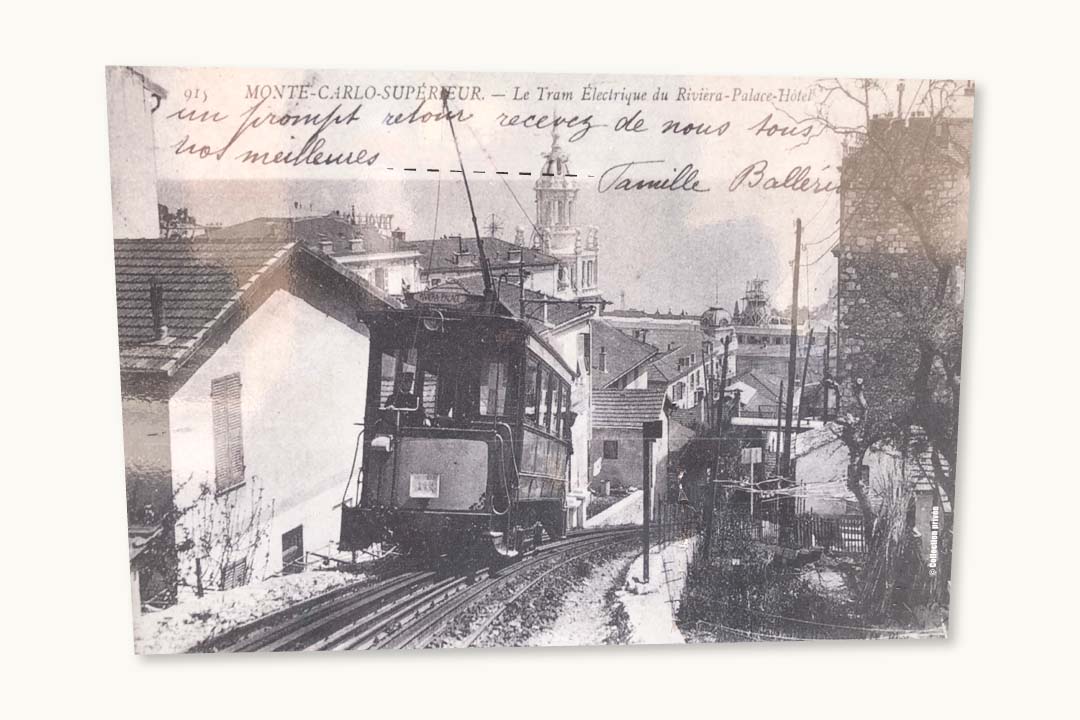 915 MONTE-CARLO-SUPÉRIEUR. — Le Tram Électrique du Riviera-Palace-Hôtel
un prompt retour recevez de nous tous
nos meilleures
Famille
RIVIERA PALACE
© Collection privée